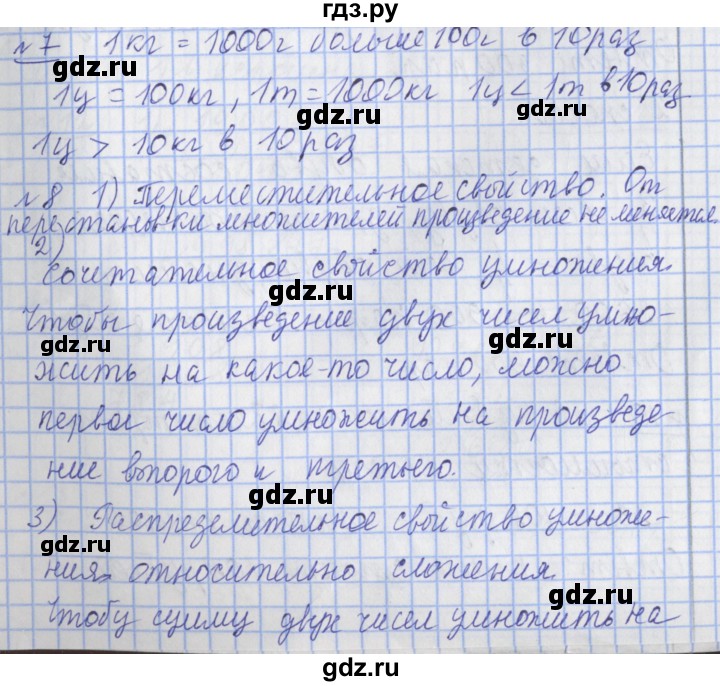 гдз.ру
№7 1кг = 1000г больше 100г в 10 раз
1ц = 100кг, 1т = 1000кг 1ц < 1т в 10 раз
1ц > 10кг в 10 раз
gdz.ru
gdz.ru
№8 1) Переместительное свойство. От
перестановки множителей произведение не меняется.
2)
gdz.ru
Сочетательное свойство умножения.
gdz.ru
Чтобы произведение двух чисел умно-
gdz.ru
gdz.ru
жить на какое-то число, можно
первое число умножить на произведе-
gdz.ru
ние второго и третьего.
gdz.ru
3) Распределительное свойство умноже-
gdz.ru
ния относительно сложения.
gdz.ru
Чтобу сумму двух чисел умножить на
gdz.ru
gdz.ru